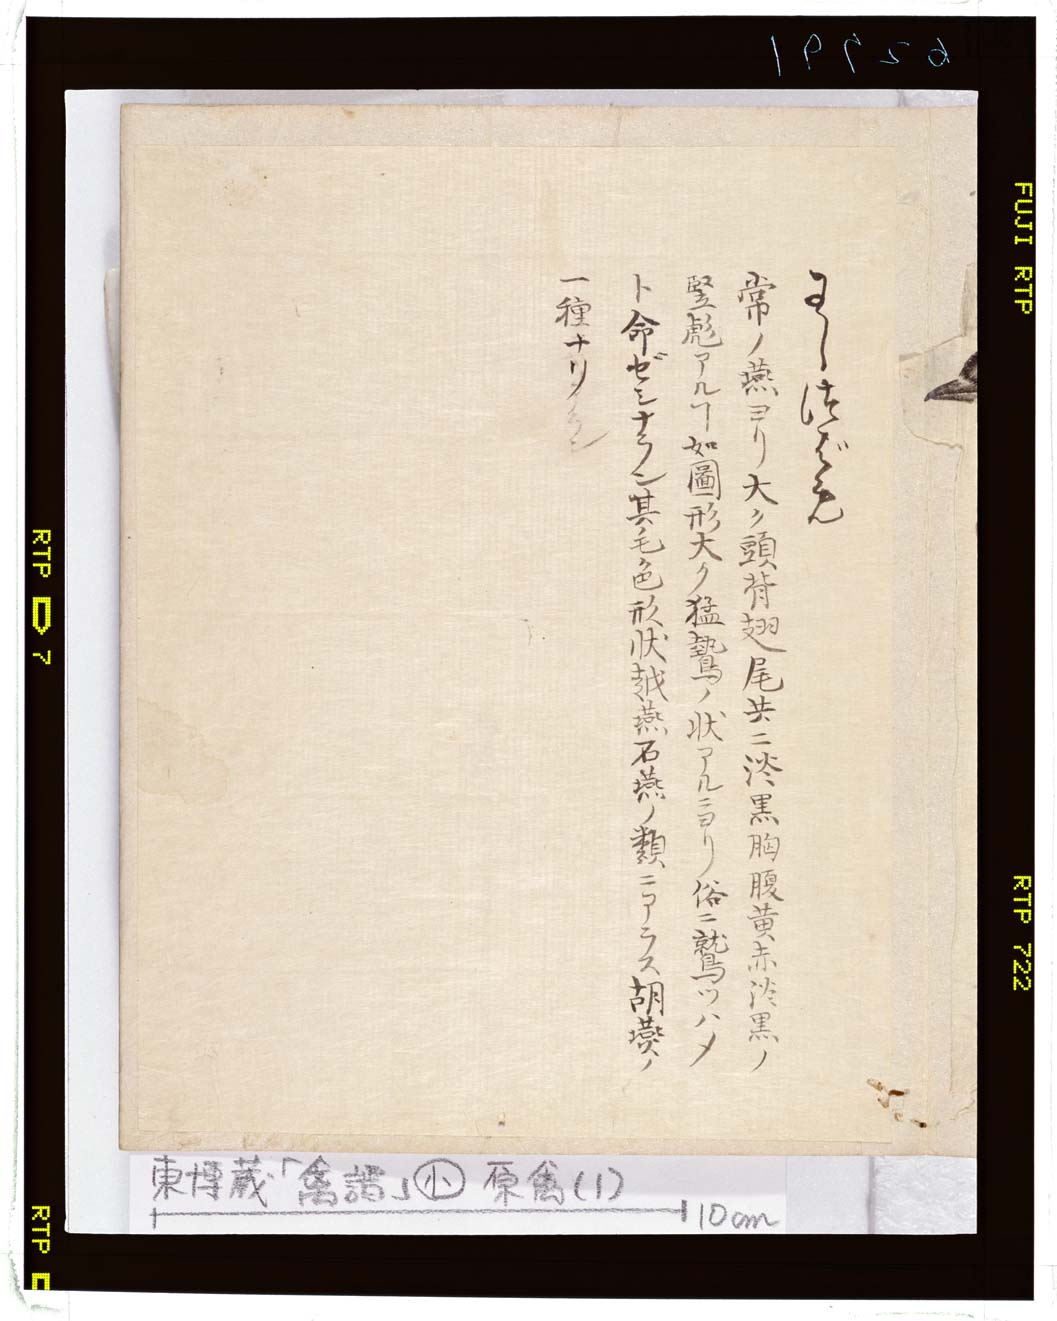 わしつばめ
常ノ燕ヨリ大ク頭背翅尾共ニ淡黒胸腹黄赤淡黒ノ
竪彪アルヿ如圖形大ク猛鷙ノ状アルニヨリ俗ニ鷲ツハメ
ト命ゼシナラン其毛色形状越燕石燕ノ類ニアラス胡燕ノ
一種ナリ
東博蔵「禽譜」小 原禽(1)
10cm
FUJI RTP
RTP 722
RTP 7
RTP